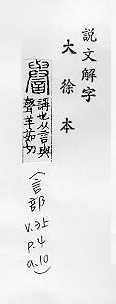 說文解字
大徐本
譽
也从言與
聲羊茹切
(言部 V.3上 P.4 a.10)